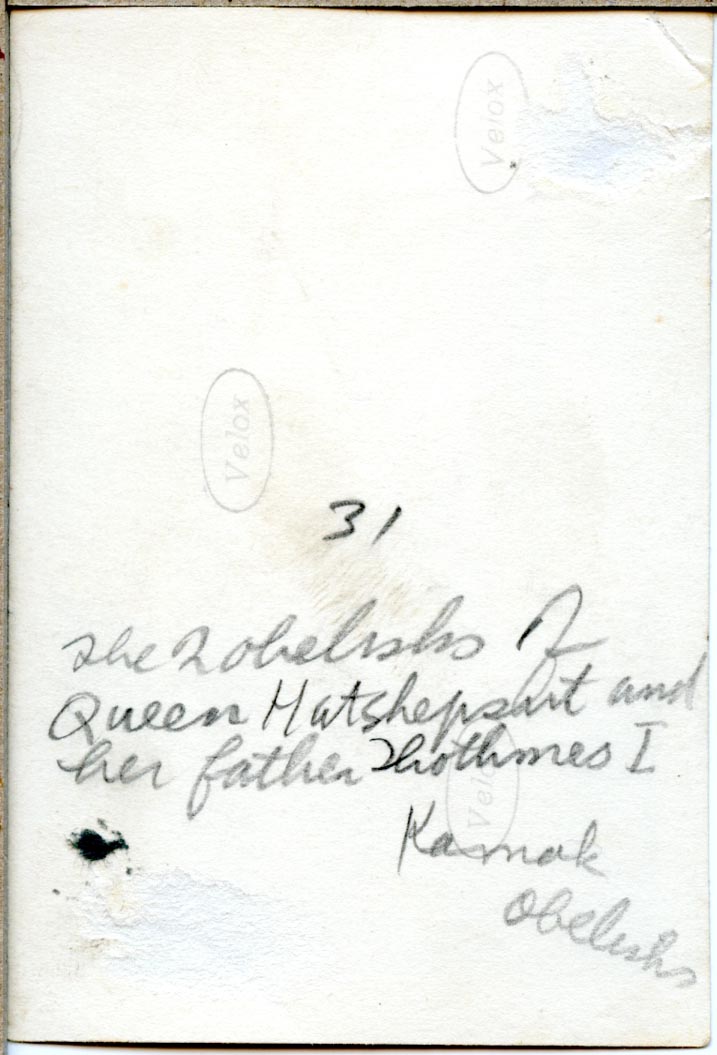 Velox
Velox
31
The 2 obelisks of
Queen Hatshepsut and
her father Thothmes I
Velox
Karnak
Obelisks